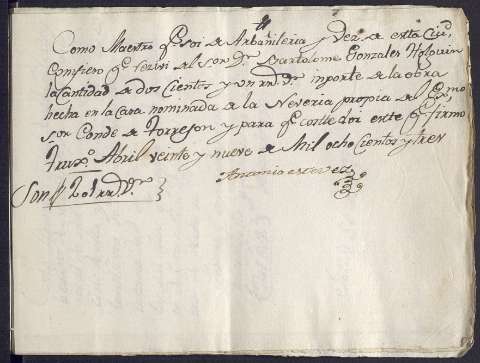 Como Maestro q.e soi de Arbañileria y Vez.o de esta Ciu.d
Confieso q.e recivi de el Sor. D.n Bartolome Gonzales Holguin
la Cantidad de Dos Cientos y un rr.s D.vn importe de la obra
hecha en la Casa nominada de la Neveria propia de el Exmo
Sor. Conde de Torrejon y para q.e coste doi este q.e firmo
Trux.o Abril veinte y nueve de Mil ocho Cientos y tres
Antonio estevez
Son 201 rr.s D.vn